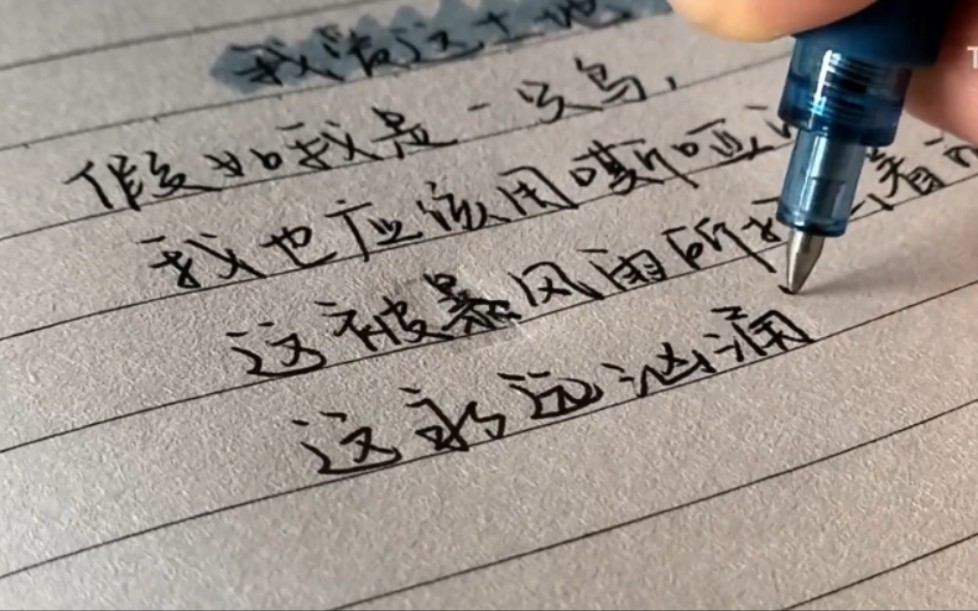 我爱这土地
假如我是一只鸟,
我也应该用嘶哑
这被暴风雨所打 着
这永远汹涌